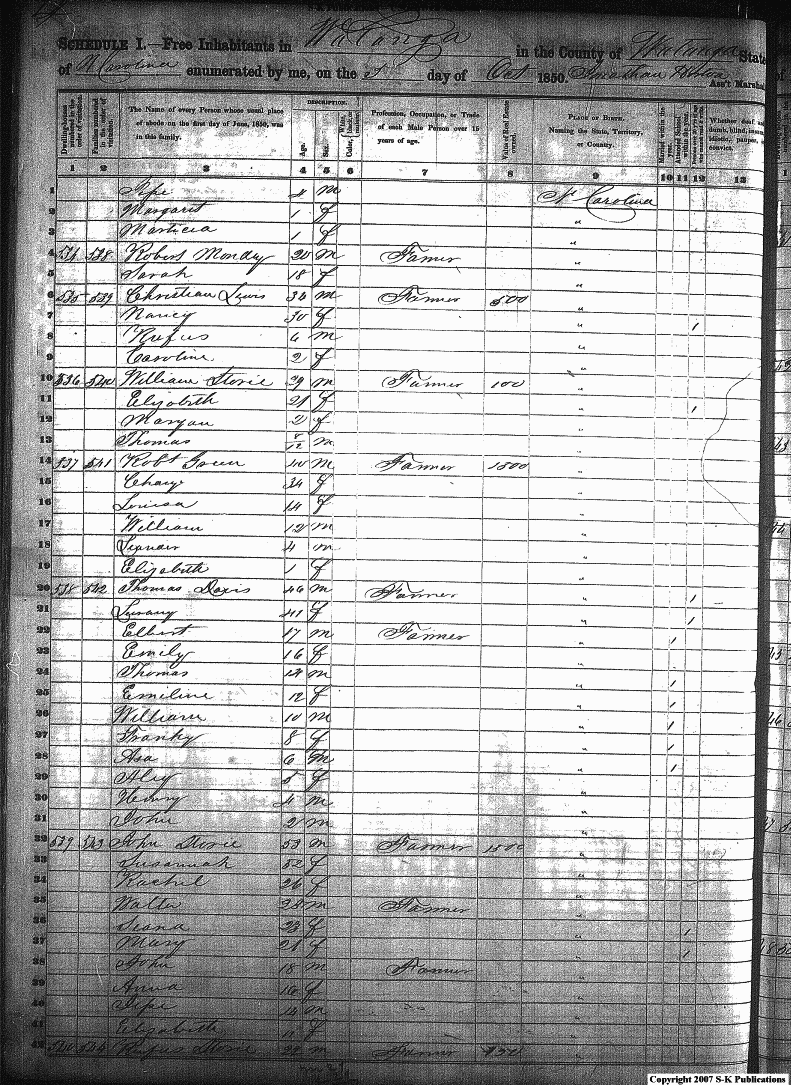 SCHEDULE I.—Free Inhabitants in Watanga in the County of Watanga State
of N Carolina enumerated by me, on the day of Oct 1850. Jonathan Horton Ass't Marshal
DESCRIPTION.
Dwelling-houses numbered in the order of visitation. Families numbered in the order of visitation. The Name of every Person whose usual place of abode on the first day of June, 1850, was in this family. Age. Sex. Color, White, Profession, Occupation, or Trade of each Male Person over 15 years of age. Value of Real Estate owned. PLACE OF BIRTH. Naming the State, Territory, or Country. Married within the year. Whether deaf and dumb, blind, insane, idiotic, pauper, or convict.
1 2 3 4 5 6 7 8 9 10 11 12 13
1 4 m N Carolina
2 Margaret 1 f "
3 1 f "
4 534 538 Robert Monday 20 m Famer "
5 Sarah 18 f "
6 535 539 Christian Lewis 34 m Farmer 500 "
7 Nancy 30 f " 1
8 Rufus 6 m "
9 Caroline 2 f "
10 536 540 William Storie 29 m Farmer 100 "
11 Elizabeth 21 f " 1
12 Maryan 2 f "
13 Thomas m "
14 537 541 Robt Green 40 m Farmer 1500 "
15 34 f "
16 Louisa 14 f "
17 William 12 m "
18 4 m "
19 Elizabeth 1 f "
20 538 542 Thomas Davis 46 m Farmer " 1
21 41 f " 1
22 Elbert 17 m Farmer " 1
23 Emily 16 f " 1
24 Thomas 14 m " 1
25 Emiline 12 f " 1
26 William 10 m " 1
27 Franky 8 f " 1
28 Asa 6 m " 1
29 Aley 5 f "
30 Henry 4 m "
31 John 2 m "
32 539 543 John Storie 53 m Farmer 1500 "
33 Susannah 52 f "
34 Rachel 26 f "
35 Walter m Farmer "
36 23 f " 1
37 Mary 21 f " 1
38 John 18 m Farmer "
39 Anna 16 f "
40 14 m "
41 Elizabeth f "
42 540 544 Rufus Storie 22 m Farmer "
Copyright 2007 S-K Publications